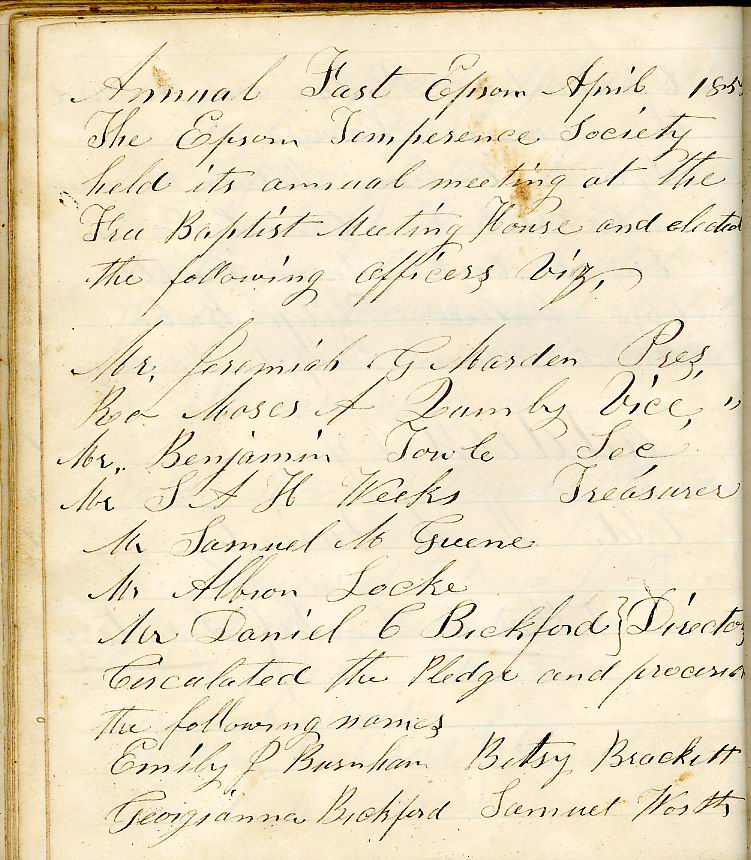 Annual Fast Epsom April 185
The Epsom Temperence Society
held its annual meeting at the
Free Baptist Meeting House and elected
the following officers Viz,
Mr. Jeremiah G Marden Pres,
Rev Moses A Quimby Vice, "
Mr. Benjamin Towle Sec
Mr S A H Weeks Treasurer
Mr Samuel M Greene
Mr Albion Locke
Mr Daniel C Bickford } Directors
Circulated the Pledge and procured
the following names
Emily J Burnham Betsy Brackett
Georgianna Bickford Samuel Worth